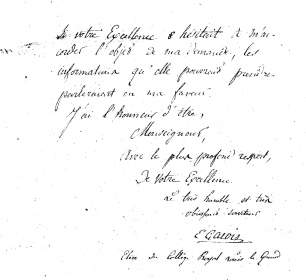 Si votre Excellence hésitait à m'ac-
corder l'objet de ma demande, les
informations qu'elle pourrait prendre
parleraient en ma faveur.
J'ai l'honneur d'être,
Monseigneur,
Avec le plus profond respect,
De Votre Excellence
Le très humble et très
obéissant serviteur
E Galois
Elève du Collège Royal Louis le Grand